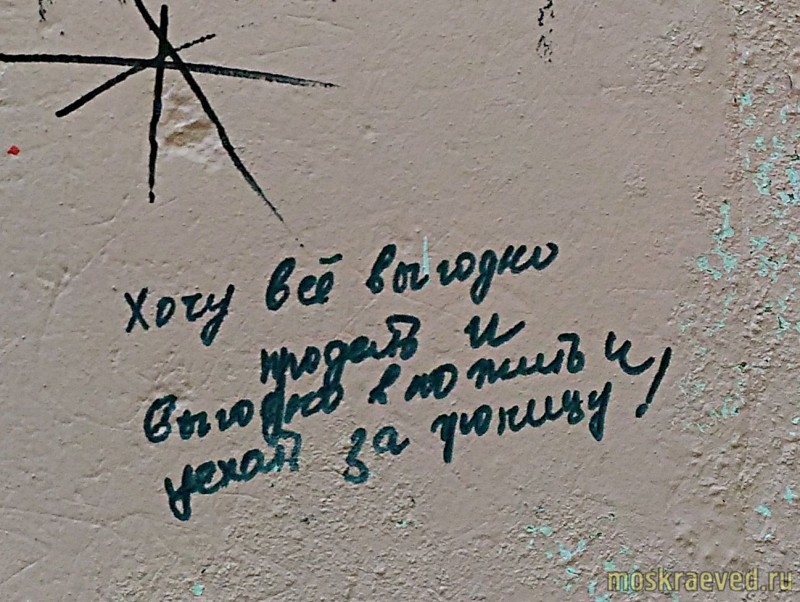 Хочу всё выгодно
продать и
выгодно вложить и
уехать за границу!
moskraeved.ru